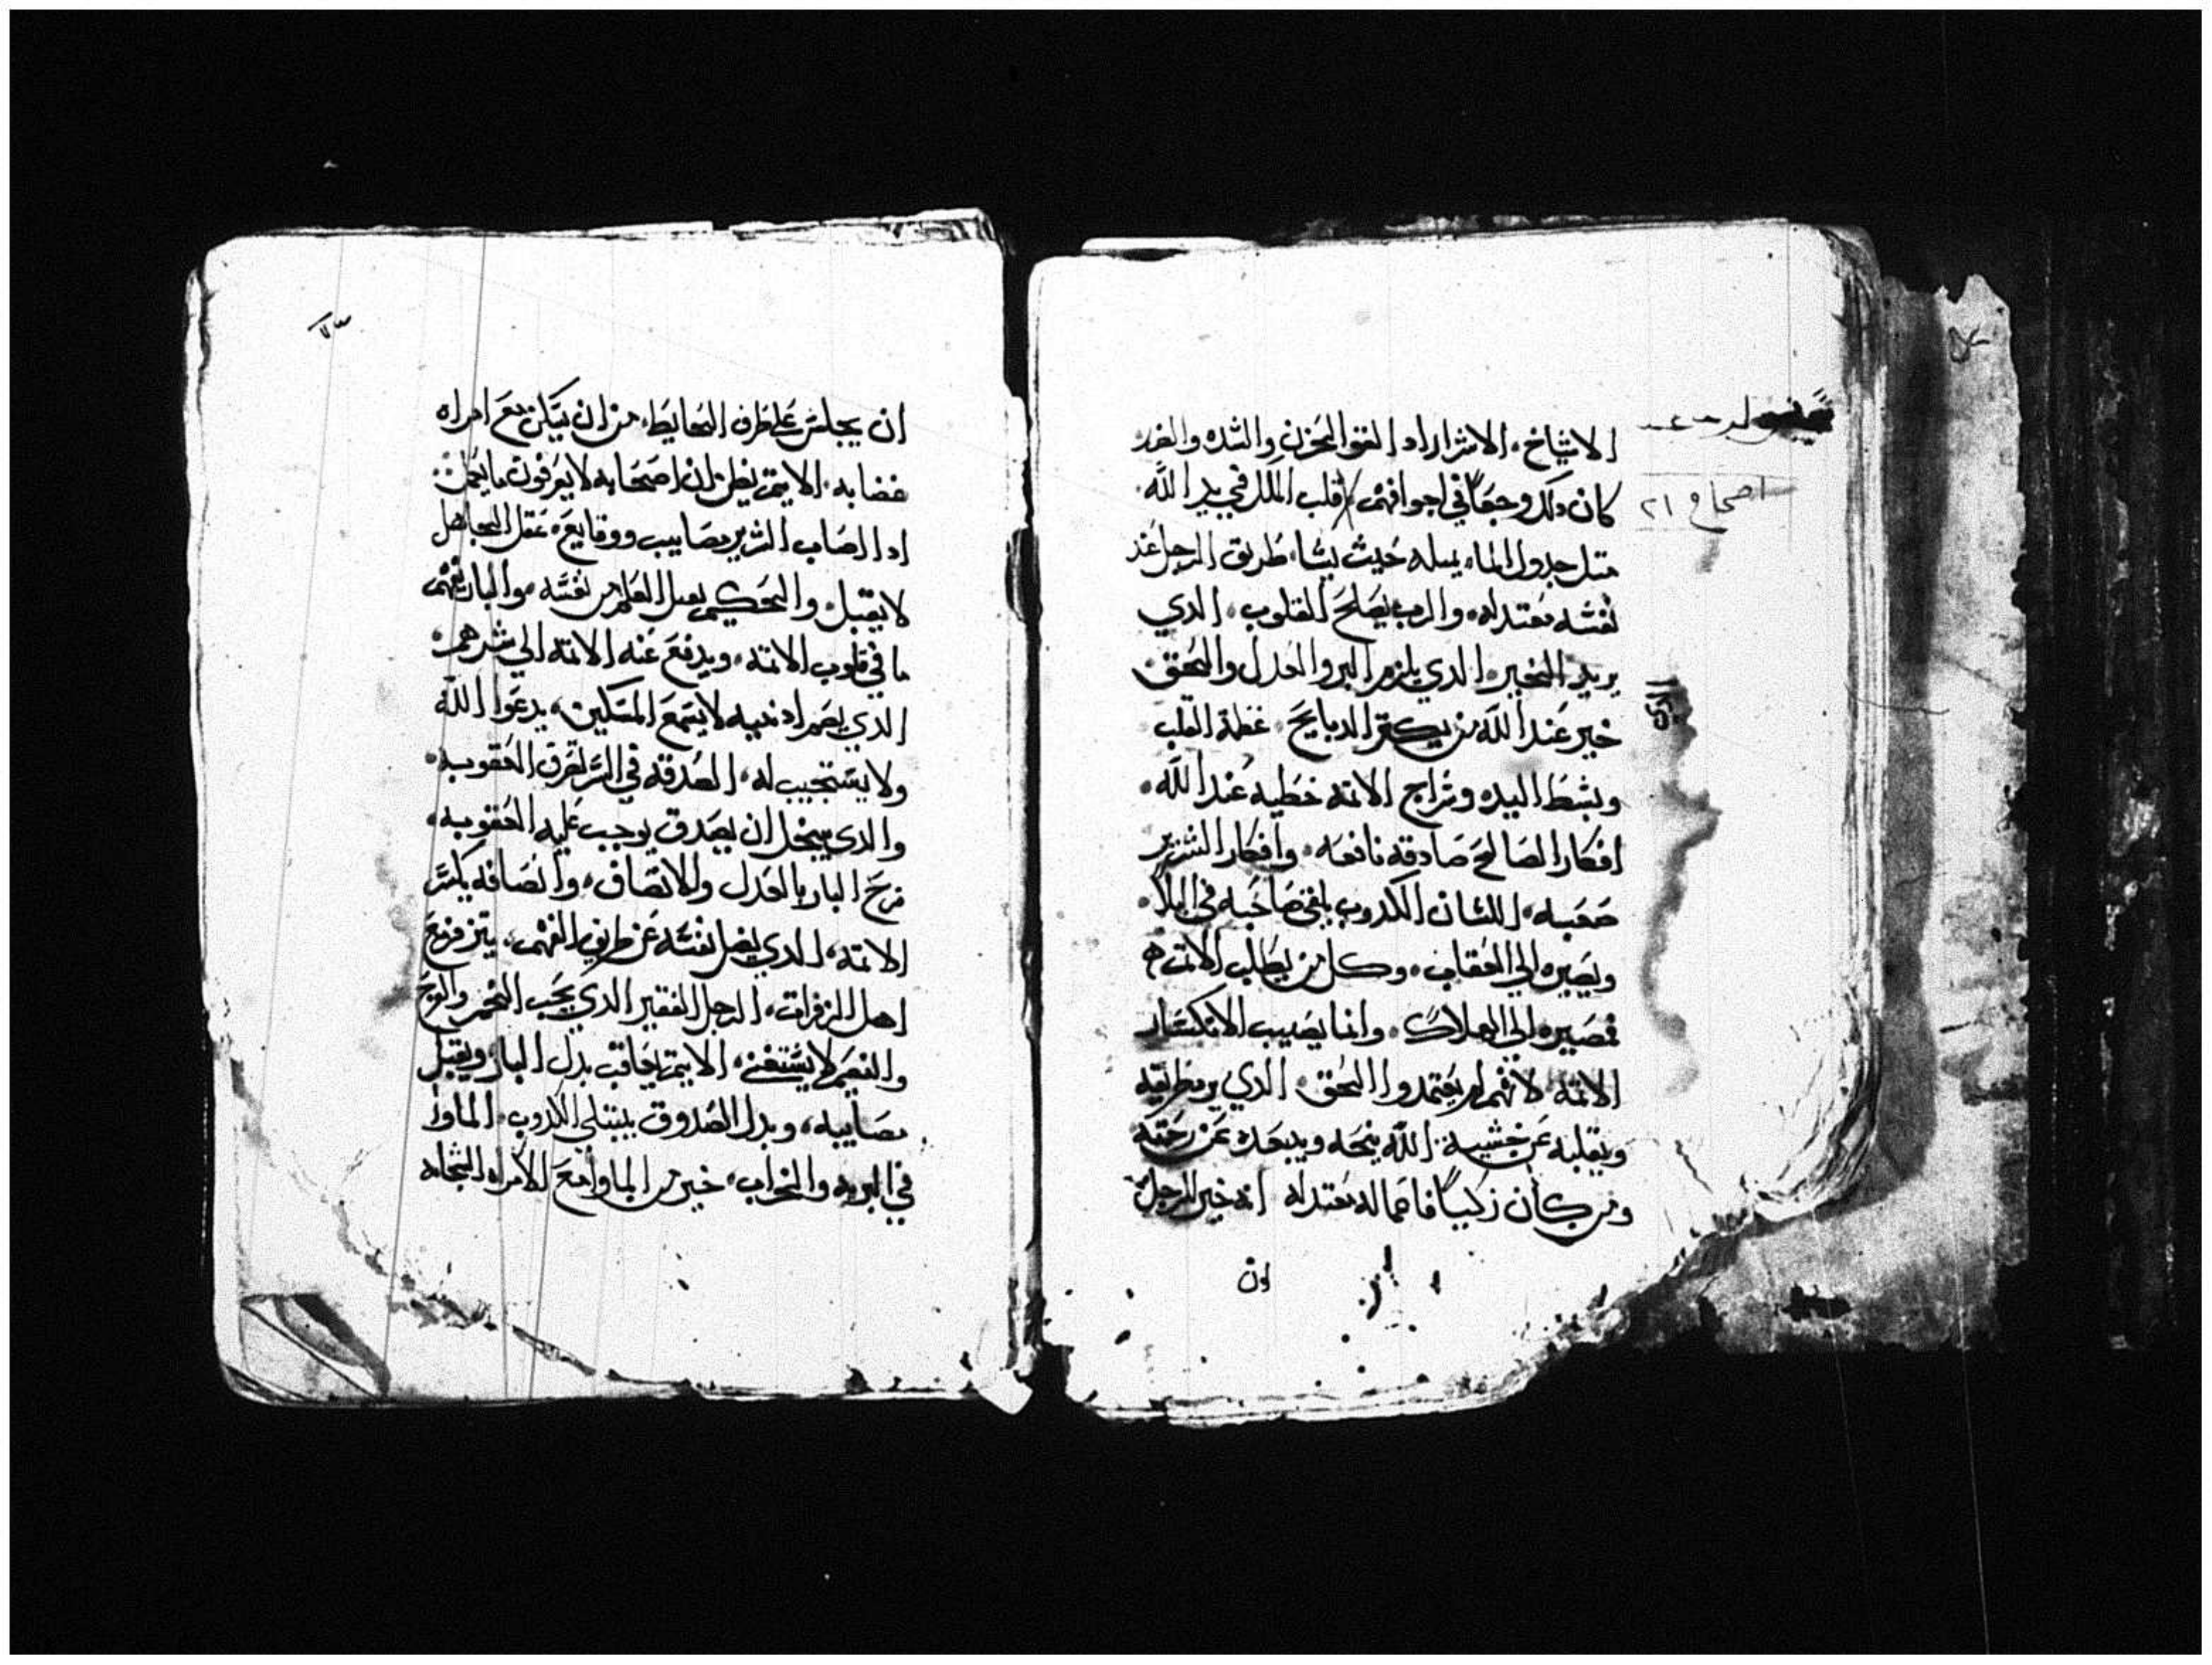 الاشياخ، الاشرار اد القو الحزن والشده والغدر
اصحاح ٢١
كان دلك وجعاً في اجوافهم، قلب الملك في يد الله،
متل جدول الماء يميله حيث يشا، طريق الرجل عند
نفسه معتدله، والرب يصلح القلوب، الدي
يريد الخير، الدي يلزم البر والعدل والحق،
خير عند الله من يكتر الدبايح، عظة القلب
وبسط اليده وسراج الاتمه خطيه عند الله،
افكار الصالح صادقه نافعه، وافكار الشرير
صعبه، اللسان الكدوب يلقي صاحبه في البلا،
ويصيره الي العقاب، وكل من يطلب الاتم
فمصيره الي الهلاك، وانما يصيب الانكسار
الاتمه لانهم لم يعتمدوا الحق، الدي يرم طريقه
ويقلبه عن خشية الله ينحه ويبعده عن رحمته
ومن كان زكياً فاعماله معتدله انه خير للرجل
ان
ان يجلس علي طرف الحايط، من ان يسكن مع امراه
غضابه، الاتيم يظن ان اصحابه لا يعرفون ما يعمل
ادا اصاب الشرير مصايب ووقايع، عقل الجاهل
لا يقبل، والحكيم يقبل العلم من نفسه، والبار يفهم
ما في قلوب الاتمه، ويدفع عنه الاتمه الي شرهم،
الدي يصم ادنيه لا يسمع المسكين، يدعوا الله
ولا يستجيب له، الصدقه في السر تفرق العقوبه،
والدي يبخل ان يصدق يوجب عليه العقوبه،
فرح البار بالعدل والانصاف، وانصافه يكسر
الاتمه، الدي يضل نفسه عن طريق الفهم، يتزفزع
اهل الزفرات، الرجل الفقير الدي يحب الخمر والفرح
والنعيم لا يستغني، الاتيم يعاقب بدل البار، ويقبل
مصايبه، وبدل الصدوق يبتلي الكدوب، الماوا
في البريه والخراب، خير من الماوا مع الامراه الشحاحه